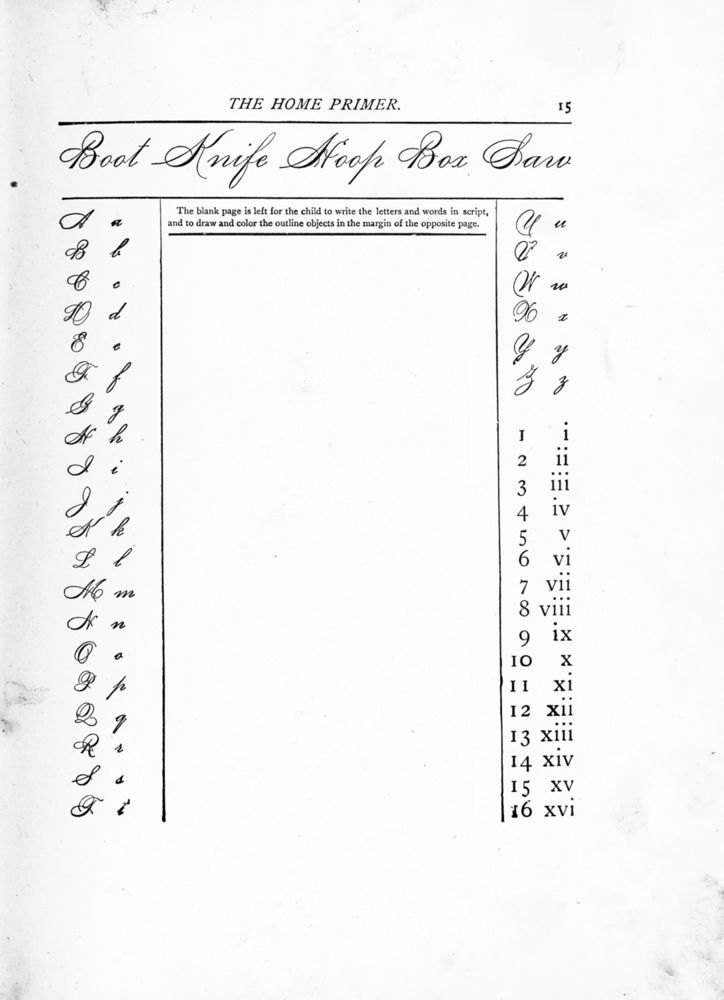 THE HOME PRIMER. 15
Boot Knife Hoop Box Saw
The blank page is left for the child to write the letters and words in script,
and to draw and color the outline objects in the margin of the opposite page.
A a
B b
C c
D d
E e
F f
G g
H h
I i
J j
K k
L l
M m
N n
O o
P p
Q q
R r
S s
T t
U u
V v
W w
X x
Y y
Z z
1 i
2 ii
3 iii
4 iv
5 v
6 vi
7 vii
8 viii
9 ix
10 x
11 xi
12 xii
13 xiii
14 xiv
15 xv
16 xvi